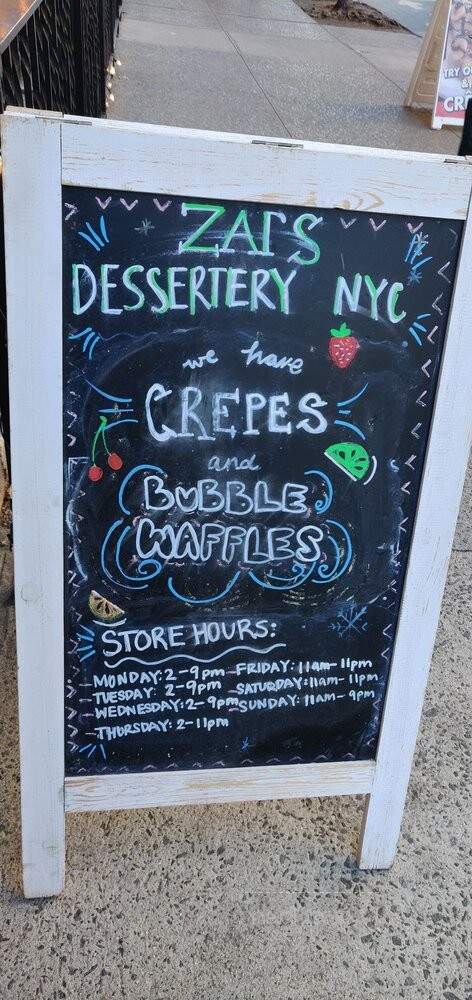 ZAI'S
DESSERTERY NYC
we have
CREPES
and
BUBBLE
WAFFLES
STORE HOURS:
MONDAY: 2-9pm FRIDAY: 11am-11pm
TUESDAY: 2-9pm SATURDAY: 11am-11pm
WEDNESDAY: 2-9pm SUNDAY: 11am-9pm
THURSDAY: 2-11pm
TRY O
&
CR